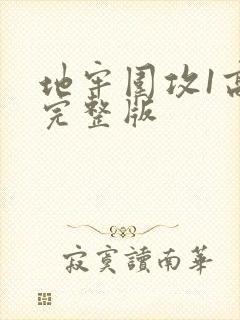 地牢围攻1高
完整版
寂寞讀南華